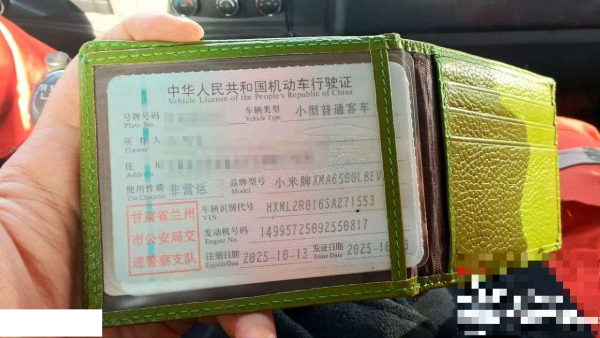 中华人民共和国机动车行驶证
Vehicle License of the People's Republic of China
号牌号码 车辆类型 小型普通客车
Plate No. Vehicle Type
所有人
Owner
住
Address
使用性质 非营运 品牌型号 小米牌XMA6500LBEV
Use Character Model
甘肃省兰州
市公安局交
通警察支队
车辆识别代号 HXML2R016SAZ71553
VIN
发动机号码 14995725092550817
Engine No.
注册日期 2025-10-13 发证日期 2025-10-13
Register Date Issue Date